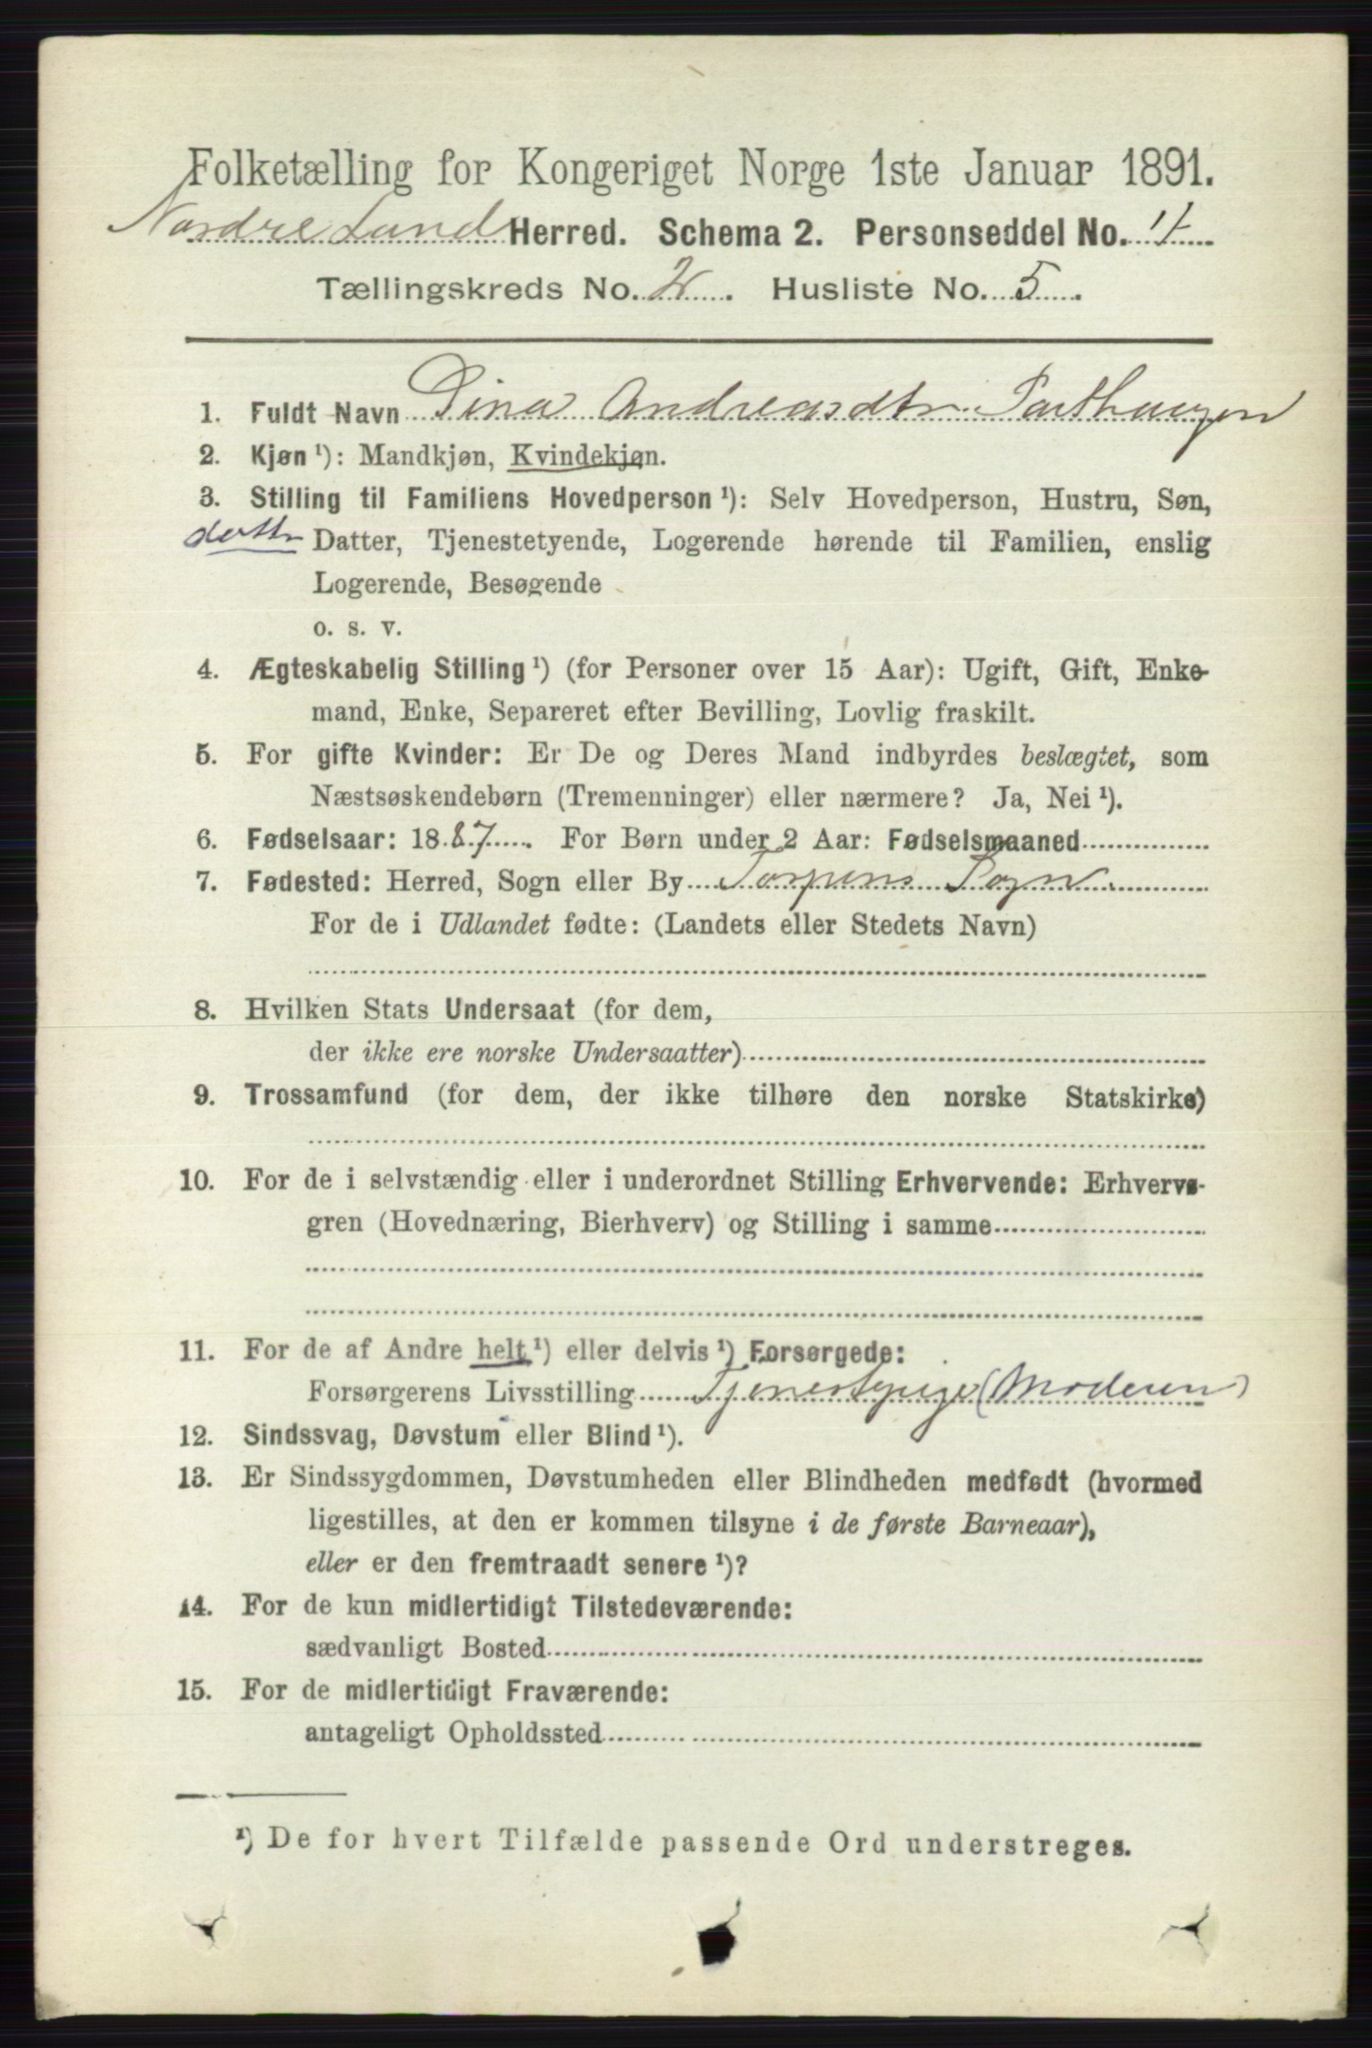 Folketælling for Kongeriget Norge 1ste Januar 1891.
Nordre Land Herred. Schema 2. Personseddel No. 4
Tællingskreds No. 2. Husliste No. 5.
1. Fuldt Navn Dina Andreasdtr.
2. Kjøn ¹): Mandkjøn, Kvindekjøn.
3. Stilling til Familiens Hovedperson ¹): Selv Hovedperson, Hustru, Søn,
dattr Datter, Tjenestetyende, Logerende hørende til Familien, enslig
Logerende, Besøgende
o. s. v.
4. Ægteskabelig Stilling ¹) (for Personer over 15 Aar): Ugift, Gift, Enke-
mand, Enke, Separeret efter Bevilling, Lovlig fraskilt.
5. For gifte Kvinder: Er De og Deres Mand indbyrdes beslægtet, som
Næstsøskendebørn (Tremenninger) eller nærmere? Ja, Nei ¹).
6. Fødselsaar: 1887. For Børn under 2 Aar: Fødselsmaaned
7. Fødested: Herred, Sogn eller By Torpens Sogn
For de i Udlandet fødte: (Landets eller Stedets Navn)
8. Hvilken Stats Undersaat (for dem,
der ikke ere norske Undersaatter)
9. Trossamfund (for dem, der ikke tilhøre den norske Statskirke)
10. For de i selvstændig eller i underordnet Stilling Erhvervende: Erhvervs-
gren (Hovednæring, Bierhverv) og Stilling i samme
11. For de af Andre helt ¹) eller delvis ¹) Forsørgede:
Forsørgerens Livsstilling Tjenestepige (Moderen)
12. Sindssvag, Døvstum eller Blind ¹).
13. Er Sindssygdommen, Døvstumheden eller Blindheden medfødt (hvormed
ligestilles, at den er kommen tilsyne i de første Barneaar),
eller er den fremtraadt senere ¹)?
14. For de kun midlertidigt Tilstedeværende:
sædvanligt Bosted
15. For de midlertidigt Fraværende:
antageligt Opholdssted
¹) De for hvert Tilfælde passende Ord understreges.